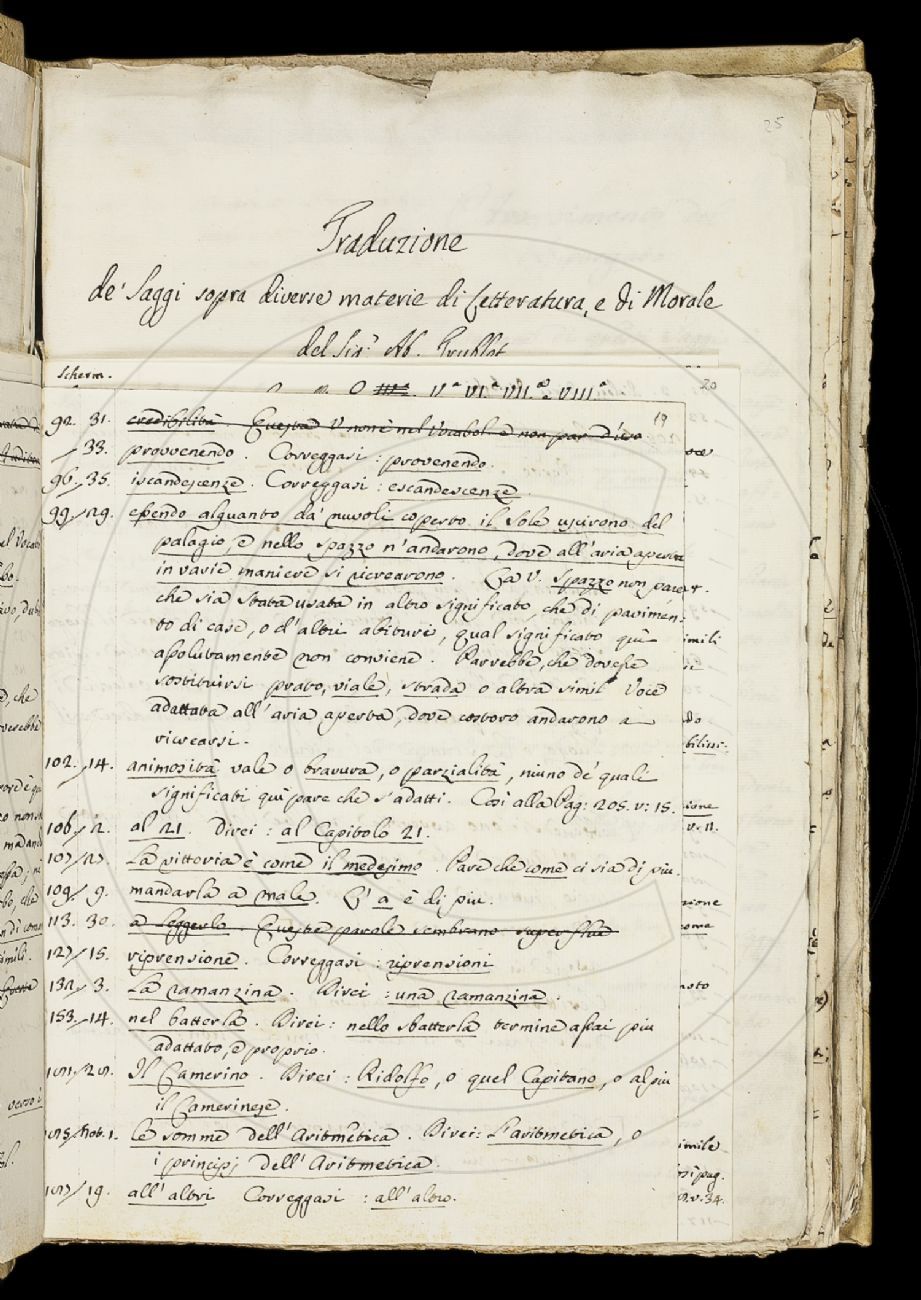 25
Traduzione
de' Saggi sopra diverse materie di Letteratura, e di Morale
del Sig.r Ab. Trublet
Scherm.
20
O IV.a VI.a VII.a VIII.a
19
92. 31. credibilità. Questa V. non è nel Vocabol. e non par d'uso.
33. provvenendo. Correggasi: provenendo.
96. 35. iscandescenze. Correggasi: escandescenze.
99. 29. essendo alquanto da' nuvoli coperto il Sole uscirono del
palagio, e nello spazzo n'andarono, dove all'aria aperta
in varie maniere si ricrearono. La V. spazzo non pare
che sia stata usata in altro significato, che di pavimen-
to di case, o d'altri abituri, qual significato quì
assolutamente non conviene. Parrebbe, che dovesse
sostituirsi prato, viale, strada o altra simile Voce
adattata all'aria aperta, dove costoro andarono a
ricrearsi.
102. 14. animosità vale o bravura, o parzialità, niuno de' quali
significati quì pare che s'adatti. Così alla Pag: 205. v: 15.
106. 2. al 21. Direi: al Capitolo 21.
107. 27. La vittoria è come il medesimo. Pare che come ci sia di più.
109. 9. mandarla a male. L'a è di più.
113. 30. a Leggerlo. Queste parole sembrano superflue
127. 15. riprensione. Correggasi: riprensioni
132. 3. La ramanzina. Direi: una ramanzina.
153. 14. nel batterla. Direi: nello sbatterla termine assai più
adattato, e proprio.
Il Camerino. Direi: Ridolfo, o quel Capitano, o al più
il Camerinese.
not. 1. le somme dell'Aritmetica. Direi: L'aritmetica, o
i principj dell'Aritmetica.
19. all'altri Correggasi: all'altro.